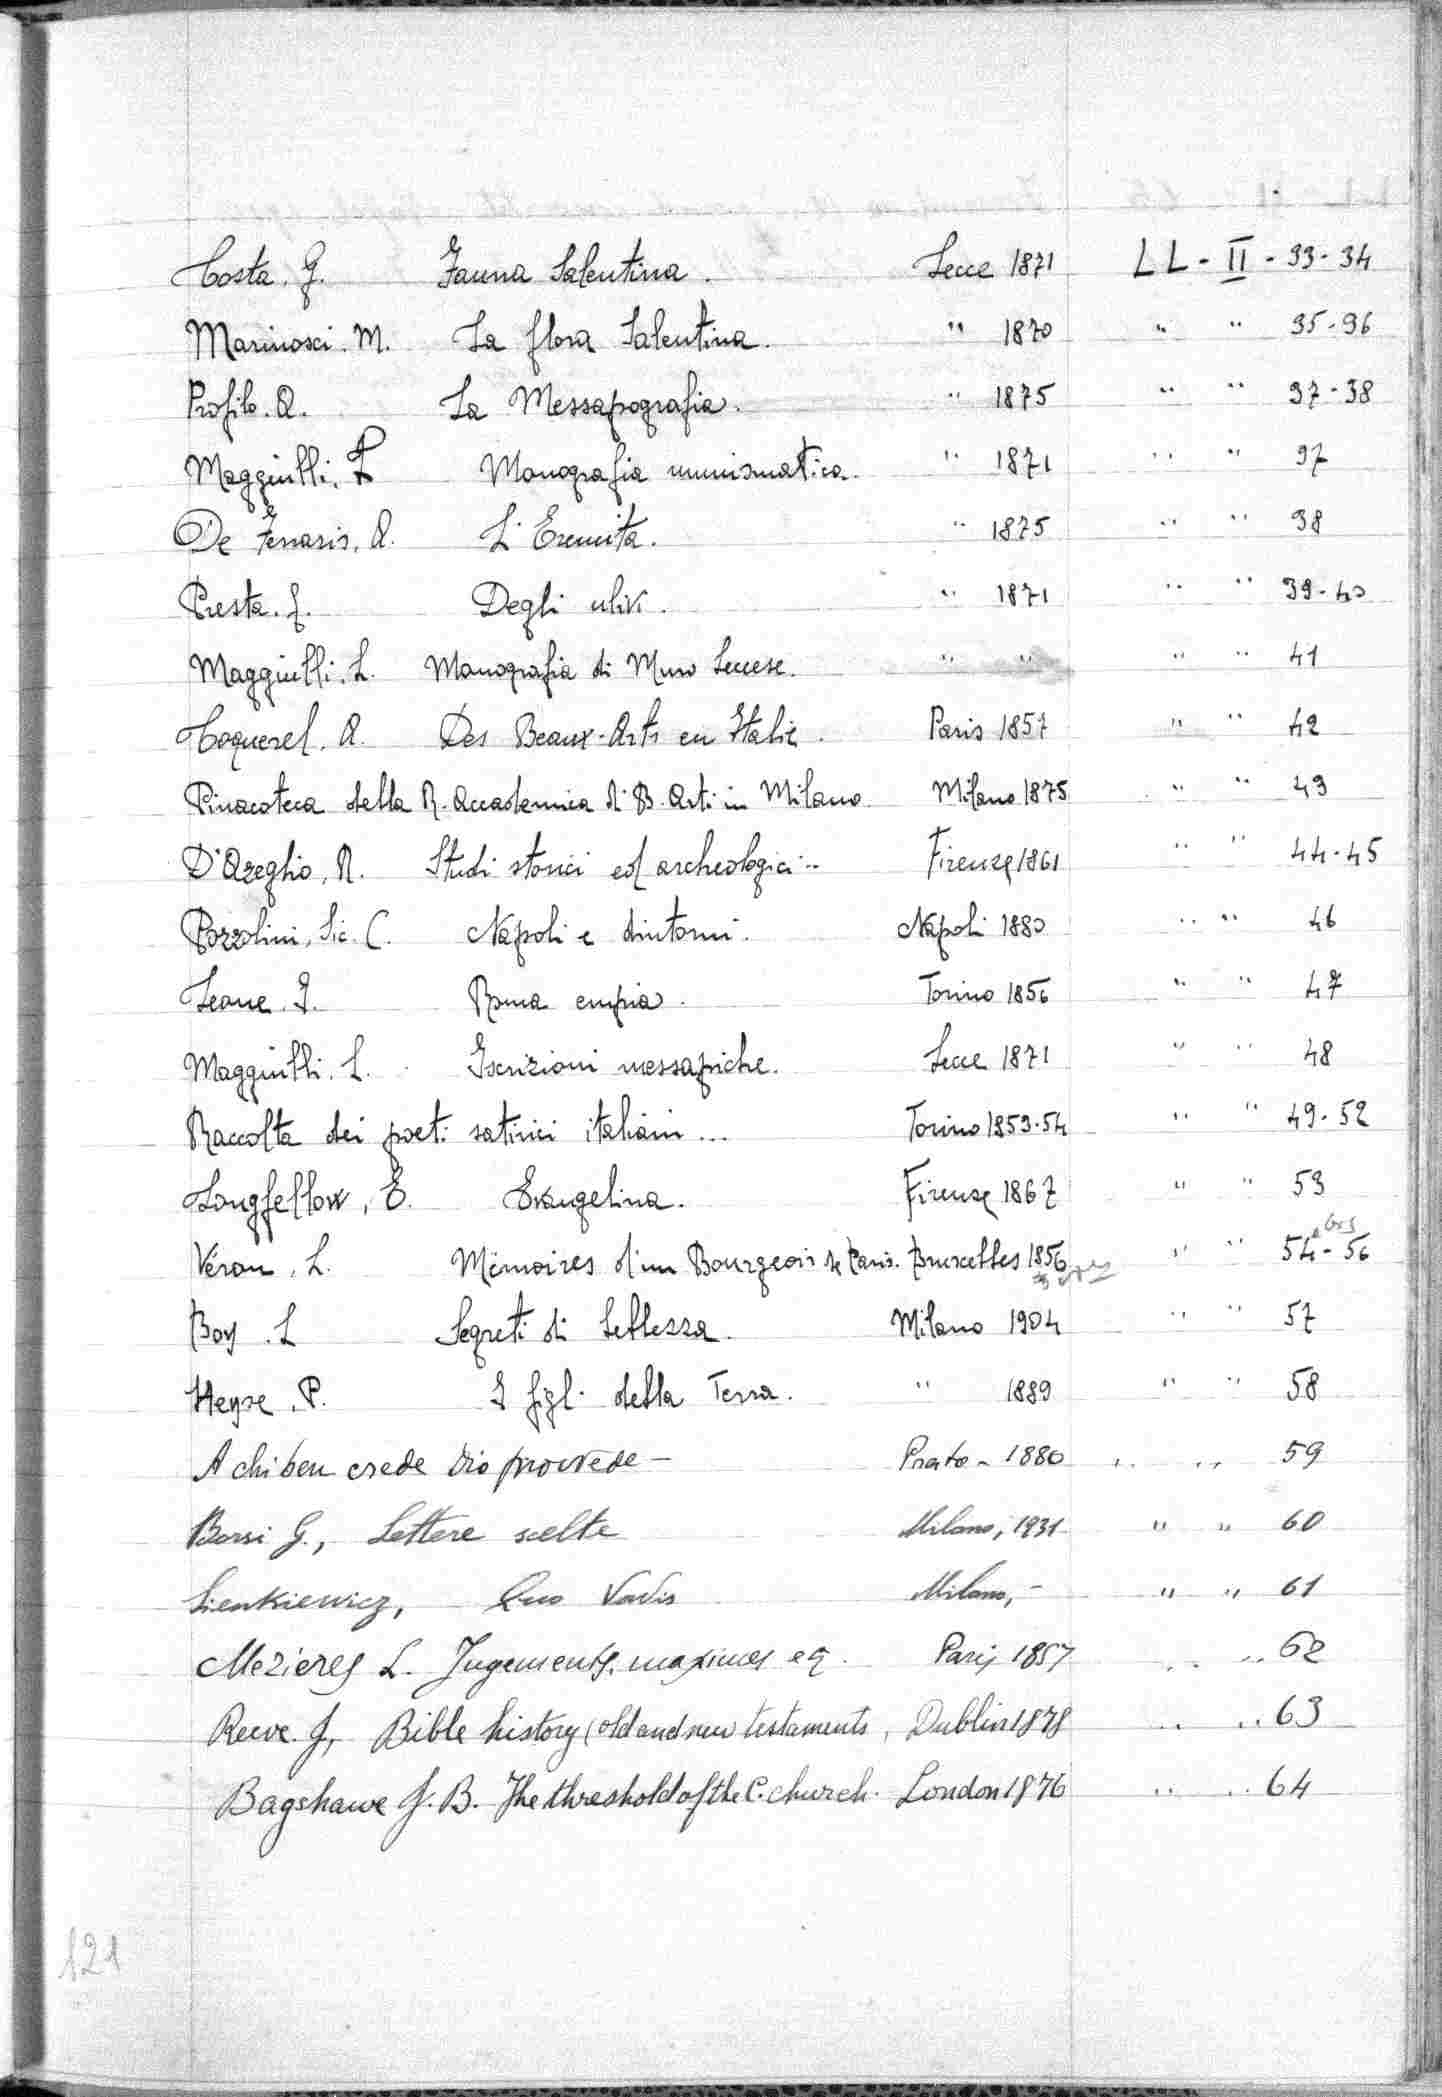 Costa. G. Fauna Salentina. Lecce 1871 LL - II - 33-34
Marinosci. M. La flora Salentina. " 1870 " " 35-36
Profilo. A. La Messapografia. " 1875 " " 37-38
Maggiulli, Monografia numismatica. " 1871 " " 37
De Ferraris, A. L'Eremita. " 1875 " " 38
Presta. G. Degli ulivi. " 1871 " " 39-40
Maggiulli. L. Monografia di Muro Leccese. " " " " 41
Coquerel. A. Des Beaux-Arts en Italie. Paris 1857 " " 42
Pinacoteca della R. Accademica di B. Arti in Milano. Milano 1875 " " 43
D'Azeglio, R. Studi storici ed archeologici... Firenze 1861 " " 44-45
Pozzolini, Sic. C. Napoli e dintorni. Napoli 1880 " " 46
Leone. J. Roma empia. Torino 1856 " " 47
Maggiulli. L. Iscrizioni messapiche. Lecce 1871 " " 48
Raccolta dei poeti satirici italiani... Torino 1853-54 " " 49-52
Longfellow, E. Evangelina. Firenze 1867 " " 53
Véron, L. Mémoires d'un Bourgeois de Paris. Bruxelles 1856 " " 54-56 bis
Boy. L Segreti di bellezza. Milano 1904 " " 57
Heyse, P. I figli della Terra. " 1889 " " 58
A chi ben crede Dio provvede - Prato - 1880 " " 59
Borsi G., Lettere scelte Milano, 1931 " " 60
Sienkiewicz, Quo Vadis Milano, - " " 61
Mezieres L. Jugements, maximes eq. Paris 1857 " " 62
Reeve. J, Bible history (old and new testaments, Dublin 1878 " " 63
Bagshawe J. B. The threshold of the C. church. London 1876 " " 64
121